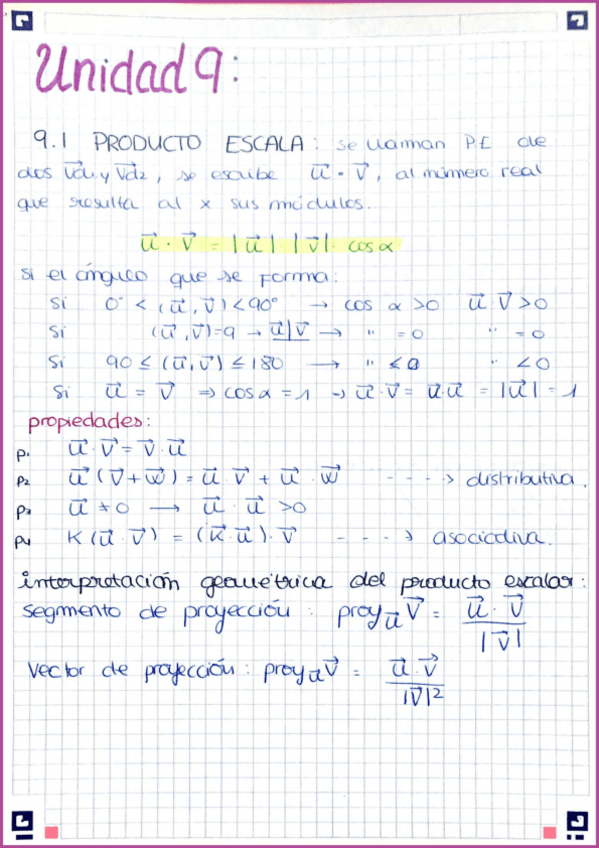 Unidad 9:
9.1 PRODUCTO ESCALA: se llaman P.E de
dos Vd1 y Vd2, se escribe u⃗ · v⃗, al número real
que resulta al x sus módulos.
u⃗ · v⃗ = |u⃗| · |v⃗| · cos α
si el ángulo que se forma:
Si 0° < (u⃗, v⃗) < 90° → cos α > 0 u⃗ v⃗ > 0
Si (u⃗, v⃗) = 9 → u⃗|v⃗ → " = 0 " = 0
Si 90 ≤ (u⃗, v⃗) ≤ 180 → " ≤ 0 " < 0
Si u⃗ = v⃗ ⇒ cos α = 1 → u⃗ · v⃗ = u⃗ · u⃗ = |u⃗| = 1
propiedades:
P1 u⃗ · v⃗ = v⃗ · u⃗
P2 u⃗ (v⃗ + w⃗) = u⃗ · v⃗ + u⃗ · w⃗ ----> distributiva.
P3 u⃗ ≠ 0 → u⃗ · u⃗ > 0
P4 K (u⃗ · v⃗) = (K⃗ · u⃗) · v⃗ ---> asociativa.
interpretación geométrica del producto escalar:
Segmento de proyección: proy u⃗ v⃗ = u⃗ · v⃗ / |v⃗|
Vector de proyección: proy u⃗ v⃗ = u⃗ · v⃗ / |v⃗|²